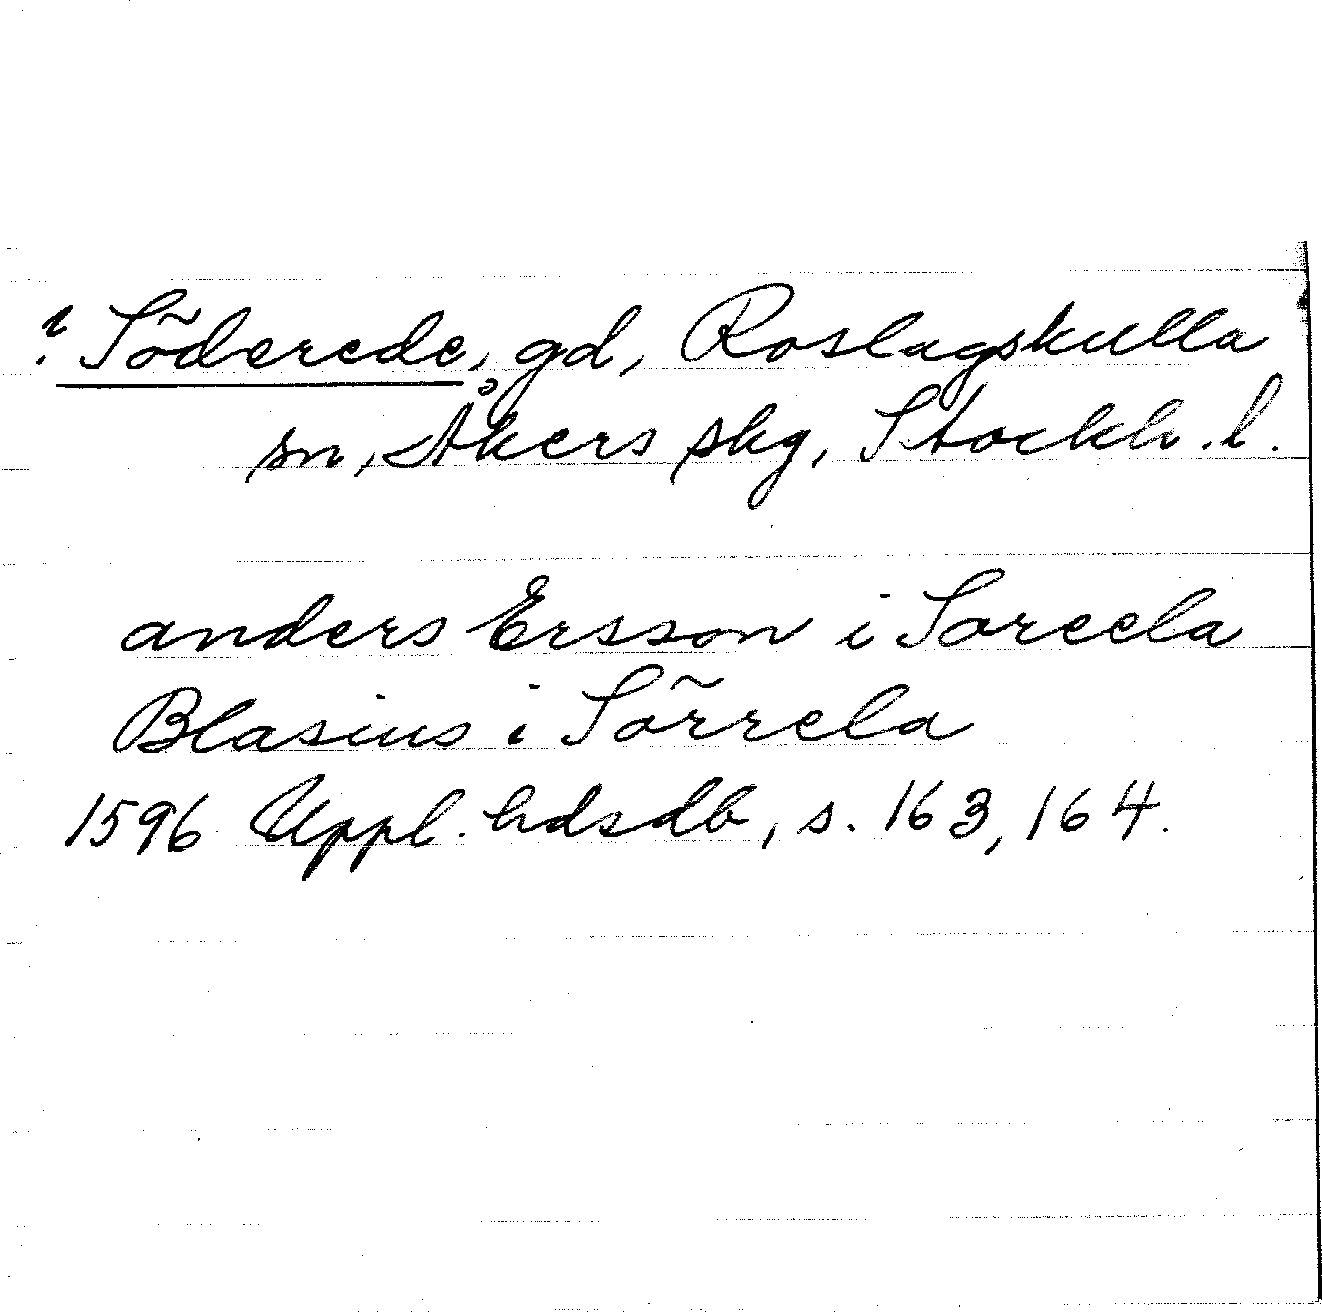 ? Söderede, gd, Roslagskulla
sn, Åkers skg, Stockh. l.
anders Ersson i Soreela
Blasius i Sörrela
1596 Uppl. hdsdb, s. 163, 164.